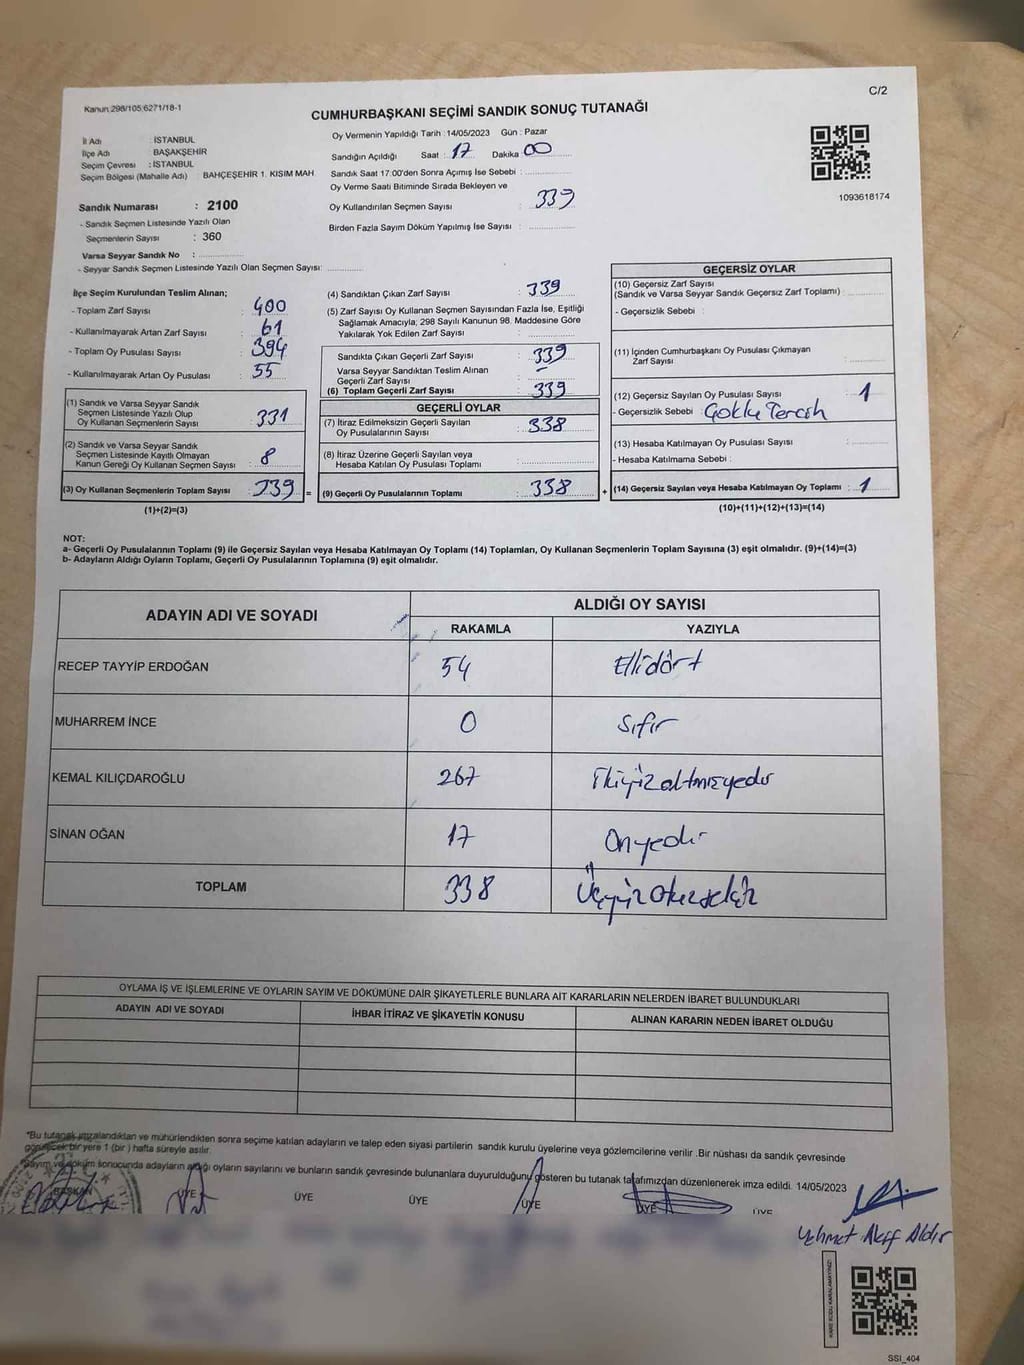 Kanun:298/105;6271/18-1
C/2
CUMHURBAŞKANI SEÇİMİ SANDIK SONUÇ TUTANAĞI
İl Adı : İSTANBUL
İlçe Adı : BAŞAKŞEHİR
Seçim Çevresi : İSTANBUL
Seçim Bölgesi (Mahalle Adı) : BAHÇEŞEHİR 1. KISIM MAH
Sandık Numarası : 2100
- Sandık Seçmen Listesinde Yazılı Olan
Seçmenlerin Sayısı : 360
Varsa Seyyar Sandık No : ............
- Seyyar Sandık Seçmen Listesinde Yazılı Olan Seçmen Sayısı: ............
Oy Vermenin Yapıldığı Tarih : 14/05/2023 Gün : Pazar
Sandığın Açıldığı Saat : 17 Dakika 00
Sandık Saat 17:00'den Sonra Açımış İse Sebebi : ............
Oy Verme Saati Bitiminde Sırada Bekleyen ve
Oy Kullandırılan Seçmen Sayısı : 339
Birden Fazla Sayım Döküm Yapılmış İse Sayısı : ............
1093618174
İlçe Seçim Kurulundan Teslim Alınan;
- Toplam Zarf Sayısı : 400
- Kullanılmayarak Artan Zarf Sayısı : 61
- Toplam Oy Pusulası Sayısı : 394
- Kullanılmayarak Artan Oy Pusulası : 55
(1) Sandık ve Varsa Seyyar Sandık
Seçmen Listesinde Yazılı Olup
Oy Kullanan Seçmenlerin Sayısı : 331
(2) Sandık ve Varsa Seyyar Sandık
Seçmen Listesinde Kayıtlı Olmayan
Kanun Gereği Oy Kullanan Seçmen Sayısı : 8
(3) Oy Kullanan Seçmenlerin Toplam Sayısı : 339 =
(1)+(2)=(3)
(4) Sandıktan Çıkan Zarf Sayısı : 339
(5) Zarf Sayısı Oy Kullanan Seçmen Sayısından Fazla İse, Eşitliği
Sağlamak Amacıyla; 298 Sayılı Kanunun 98. Maddesine Göre
Yakılarak Yok Edilen Zarf Sayısı : ............
Sandıkta Çıkan Geçerli Zarf Sayısı : 339
Varsa Seyyar Sandıktan Teslim Alınan
Geçerli Zarf Sayısı : -
(6) Toplam Geçerli Zarf Sayısı : 339
GEÇERLİ OYLAR
(7) İtiraz Edilmeksizin Geçerli Sayılan
Oy Pusulalarının Sayısı : 338
(8) İtiraz Üzerine Geçerli Sayılan veya
Hesaba Katılan Oy Pusulası Toplamı : ............
(9) Geçerli Oy Pusulalarının Toplamı : 338 +
GEÇERSİZ OYLAR
(10) Geçersiz Zarf Sayısı
(Sandık ve Varsa Seyyar Sandık Geçersiz Zarf Toplamı) : ............
- Geçersizlik Sebebi :
(11) İçinden Cumhurbaşkanı Oy Pusulası Çıkmayan
Zarf Sayısı : ............
(12) Geçersiz Sayılan Oy Pusulası Sayısı : 1
- Geçersizlik Sebebi Çoklu Tercih
(13) Hesaba Katılmayan Oy Pusulası Sayısı : ............
- Hesaba Katılmama Sebebi :
(14) Geçersiz Sayılan veya Hesaba Katılmayan Oy Toplamı : 1
(10)+(11)+(12)+(13)=(14)
NOT:
a- Geçerli Oy Pusulalarının Toplamı (9) ile Geçersiz Sayılan veya Hesaba Katılmayan Oy Toplamı (14) Toplamları, Oy Kullanan Seçmenlerin Toplam Sayısına (3) eşit olmalıdır. (9)+(14)=(3)
b- Adayların Aldığı Oyların Toplamı, Geçerli Oy Pusulalarının Toplamına (9) eşit olmalıdır.
ADAYIN ADI VE SOYADI ALDIĞI OY SAYISI
RAKAMLA YAZIYLA
RECEP TAYYİP ERDOĞAN 54 Ellidört
MUHARREM İNCE 0 Sıfır
KEMAL KILIÇDAROĞLU 267 İkiyüzaltmışyedi
SİNAN OĞAN 17 Onyedi
TOPLAM 338 Üçyüzotuzsekiz
OYLAMA İŞ VE İŞLEMLERİNE VE OYLARIN SAYIM VE DÖKÜMÜNE DAİR ŞİKAYETLERLE BUNLARA AİT KARARLARIN NELERDEN İBARET BULUNDUKLARI
ADAYIN ADI VE SOYADI İHBAR İTİRAZ VE ŞİKAYETİN KONUSU ALINAN KARARIN NEDEN İBARET OLDUĞU
*Bu tutanak imzalandıktan ve mühürlendikten sonra seçime katılan adayların ve talep eden siyasi partilerin sandık kurulu üyelerine veya gözlemcilerine verilir .Bir nüshası da sandık çevresinde
görülecek bir yere 1 (bir ) hafta süreyle asılır.
Sayım ve döküm sonucunda adayların aldığı oyların sayılarını ve bunların sandık çevresinde bulunanlara duyurulduğunu gösteren bu tutanak tarafımızdan düzenlenerek imza edildi. 14/05/2023
BAŞKAN ÜYE ÜYE ÜYE ÜYE ÜYE ÜYE
Akif Aldır
SSI_404